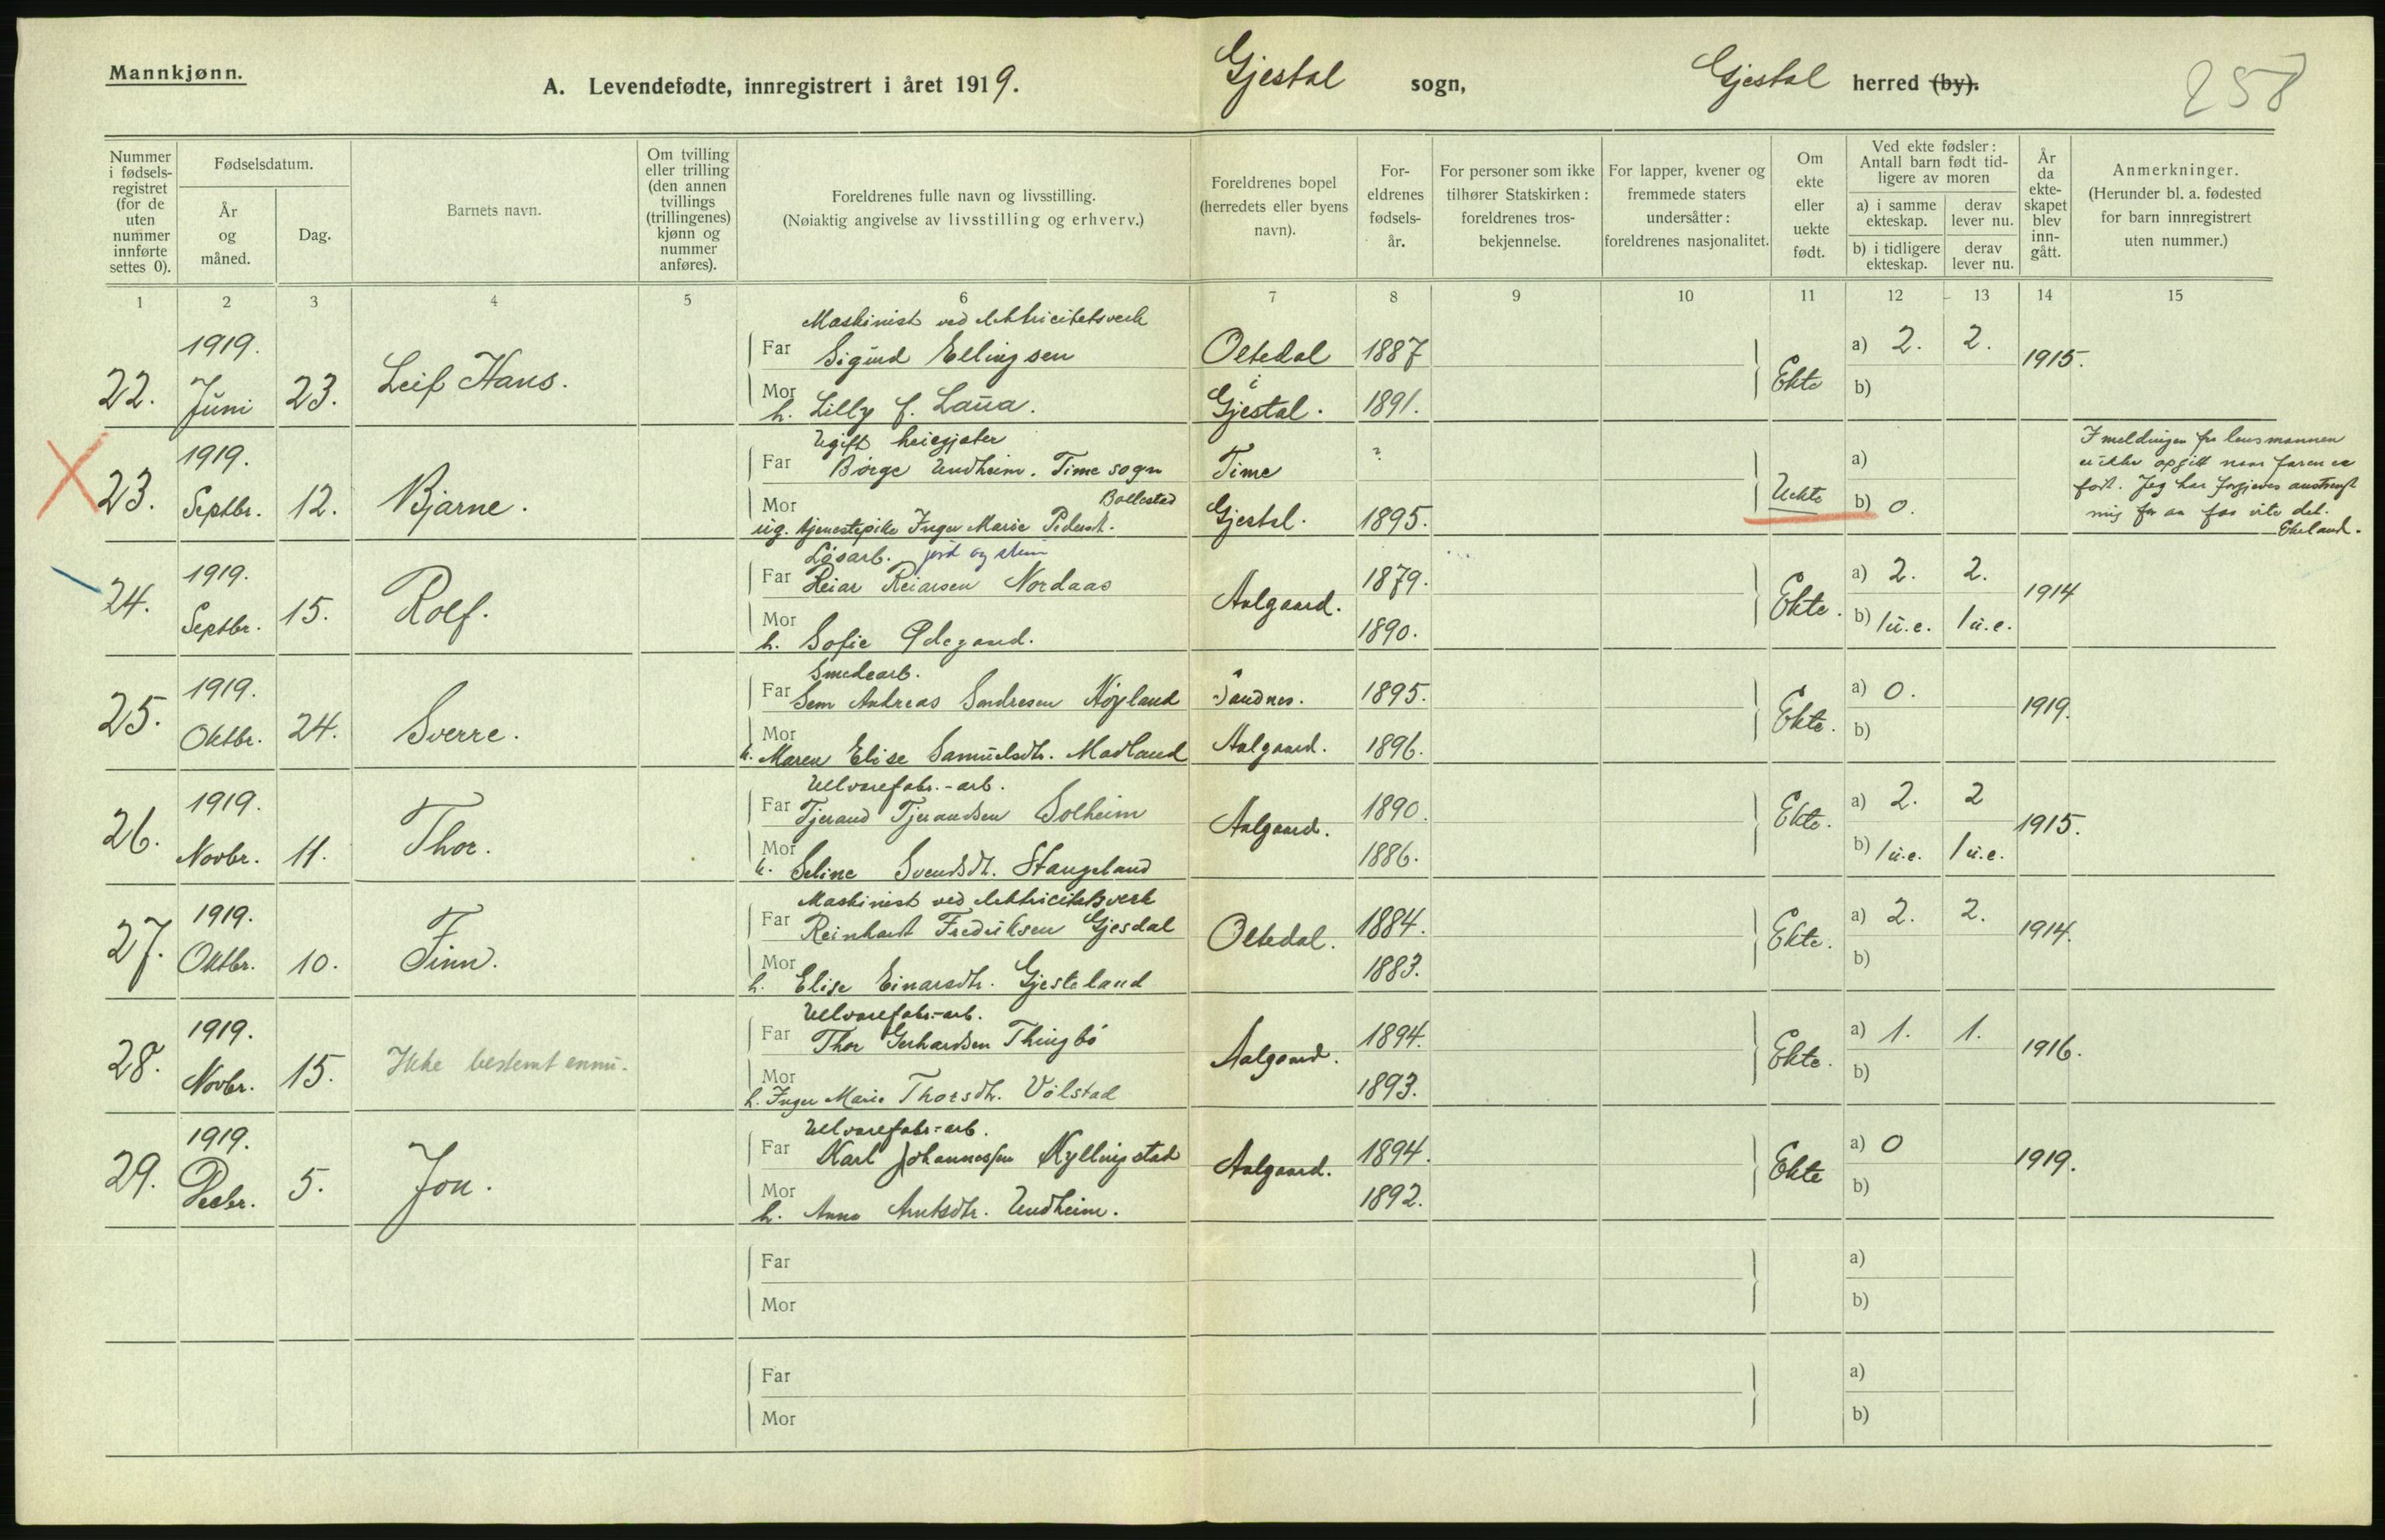 Mannkjønn.
A. Levendefødte, innregistrert i året 1919. Gjestal sogn, Gjestal herred (by). 258
Nummer i fødsels-registret (for de uten nummer innførte settes 0).
Fødselsdatum.
År og måned.
Dag.
Barnets navn.
Om tvilling eller trilling (den annen tvillings (trillingenes) kjønn og nummer anføres).
Foreldrenes fulle navn og livsstilling.
(Nøiaktig angivelse av livsstilling og erhverv.)
Foreldrenes bopel (herredets eller byens navn).
For-eldrenes fødsels-år.
For personer som ikke tilhører Statskirken: foreldrenes tros-bekjennelse.
For lapper, kvener og fremmede staters undersåtter: foreldrenes nasjonalitet.
Om ekte eller uekte født.
Ved ekte fødsler: Antall barn født tid-ligere av moren
a) i samme ekteskap. derav lever nu.
b) i tidligere ekteskap. derav lever nu.
År da ekte-skapet blev inn-gått.
Anmerkninger.
(Herunder bl. a. fødested for barn innregistrert uten nummer.)
1 2 3 4 5 6 7 8 9 10 11 12 13 14 15
Maskinist ved elektricitetsverk
22. 1919. Juni 23. Leif Hans. Far Sigurd Ellingsen Oltedal 1887 Ekte a) 2. 2. 1915.
Mor h. Lilly f. Laua. i Gjestal. 1891. b)
Ugift heiegjeter
23. 1919. Septbr. 12. Bjarne. Far Börge Undheim. Time sogn Time ? Uekte a)
Bollestad
Mor ug. tjenestepike Inger Marie Pedersdt. Gjestal. 1895. b) 0.
I meldingen fra lensmannen
er ikke opgitt naar faren er
født. Jeg har forgjeves anstrengt
mig for aa faa vite det.
Ekeland.
Lösarb. jord og sten
24. 1919. Septbr. 15. Rolf. Far Reiar Reiarsen Nordaas Aalgaard. 1879. Ekte. a) 2. 2. 1914
Mor h. Sofie Ödegaard. 1890. b) 1 u.e. 1 u.e.
Smedearb.
25. 1919. Oktbr. 24. Sverre. Far Sem Andreas Sondresen Höyland Sandnes. 1895. Ekte. a) 0. 1919.
Mor h. Maren Elise Samuelsdtr. Madland Aalgaard. 1896. b)
Ulvarefabr.-arb.
26. 1919. Novbr. 11. Thor. Far Tjerand Tjerandsen Solheim Aalgaard. 1890. Ekte. a) 2. 2 1915.
Mor h. Seline Svendsdt. Stangeland 1886. b) 1 u.e. 1 u.e.
Maskinist ved elektricitetsverk
27. 1919. Oktbr. 10. Finn. Far Reinhart Fredriksen Gjesdal Oltedal. 1884. Ekte. a) 2. 2. 1914.
Mor h. Elise Einarsdtr. Gjesteland 1883. b)
Ulvarefabr.-arb.
28. 1919. Novbr. 15. Ikke bestemt ennu. Far Thor Gerhardsen Thingbö Aalgaard. 1894. Ekte. a) 1. 1. 1916.
Mor h. Inger Marie Thorsdtr. Völstad 1893. b)
Ulvarefabr.-arb.
29. 1919. Decbr. 5. Jon. Far Karl Johannessen Kyllingstad Aalgaard. 1894. Ekte a) 0 1919.
Mor h. Anna Arntsdtr. Undheim. 1892. b)
Far a)
Mor b)
Far a)
Mor b)